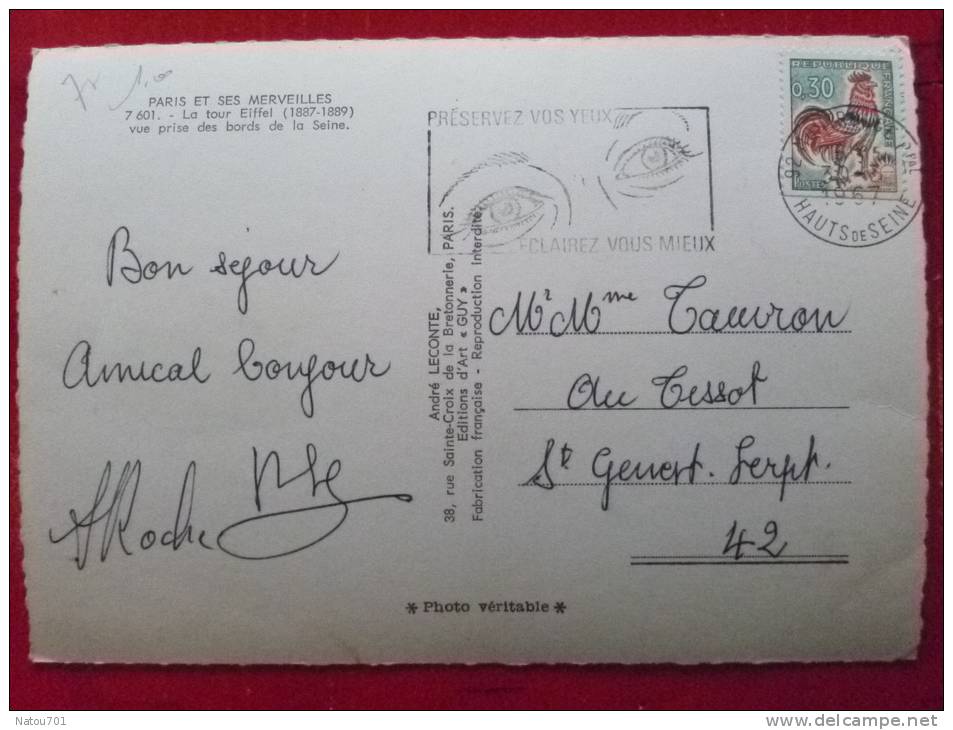 PARIS ET SES MERVEILLES
7 601. - La tour Eiffel (1887-1889)
vue prise des bords de la Seine.
1,00
Bon séjour
Amical bonjour
Roche
PRÉSERVEZ VOS YEUX
ÉCLAIREZ VOUS MIEUX
REPUBLIQUE
FRANÇAISE
0,30
POSTES
92
1967
HAUTS DE SEINE
André LECONTE,
38, rue Sainte-Croix de la Bretonnerie, PARIS.
Editions d'Art « GUY »
Fabrication française - Reproduction interdite.
Mr Mme Tauvron
Au Tissot
St Genest. Lerpt.
42
* Photo véritable *
Natou701
delcampe.net